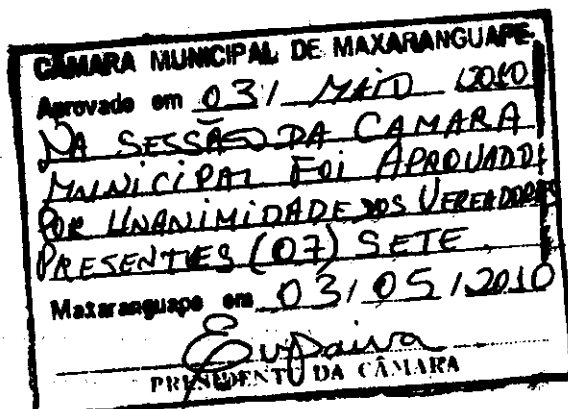 CÂMARA MUNICIPAL DE MAXARANGUAPE
Aprovado em 03/ MAIO /2010
NA SESSÃO DA CAMARA
MUNICIPAL FOI APROVADO
POR UNANIMIDADE DOS VEREADORES
PRESENTES (07) SETE
Maxaranguape em 03/05/2010
PRESIDENTE DA CÂMARA